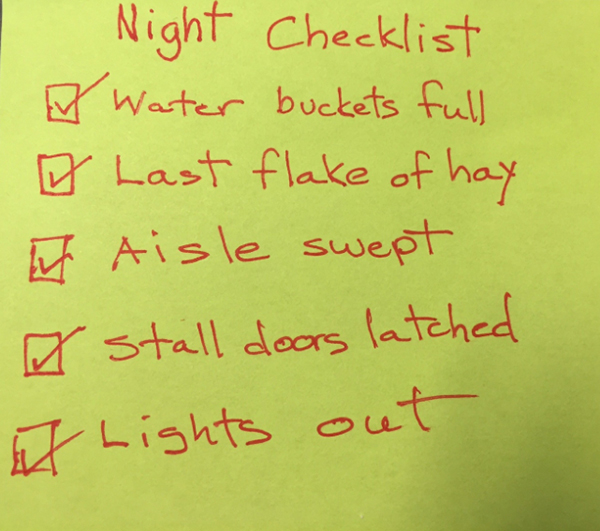 Night Checklist
☑ Water buckets full
☑ Last flake of hay
☑ Aisle swept
☑ Stall doors latched
☑ Lights out